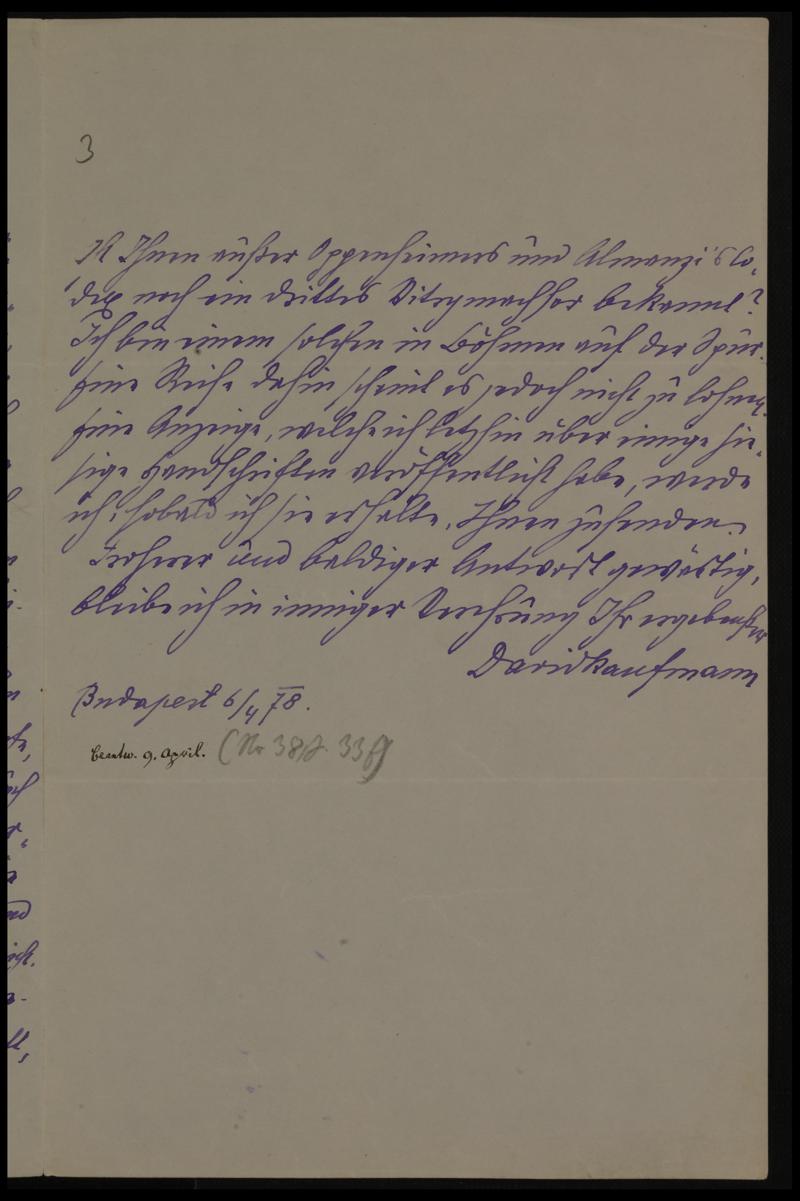 3
Ist Ihnen außer Oppenheimers und Almanzi's Co-
dex noch ein drittes Vitrymachsor bekannt?
Ich bin einem solchen in Böhmen auf der Spur.
Eine Reise dahin scheint es jedoch nicht zu lohnen.
Eine Anzeige, welche ich letzhin über einige hie-
sige Handschriften veröffentlicht habe, werde
ich, sobald ich sie erhalte, Ihnen zusenden.
Froher und baldiger Antwort gewärtig,
bleibe ich in inniger Verehrung Ihr ergebenster
David Kaufmann
Budapest 6/4 78.
beantw. 9. April. (Nr 38, 33